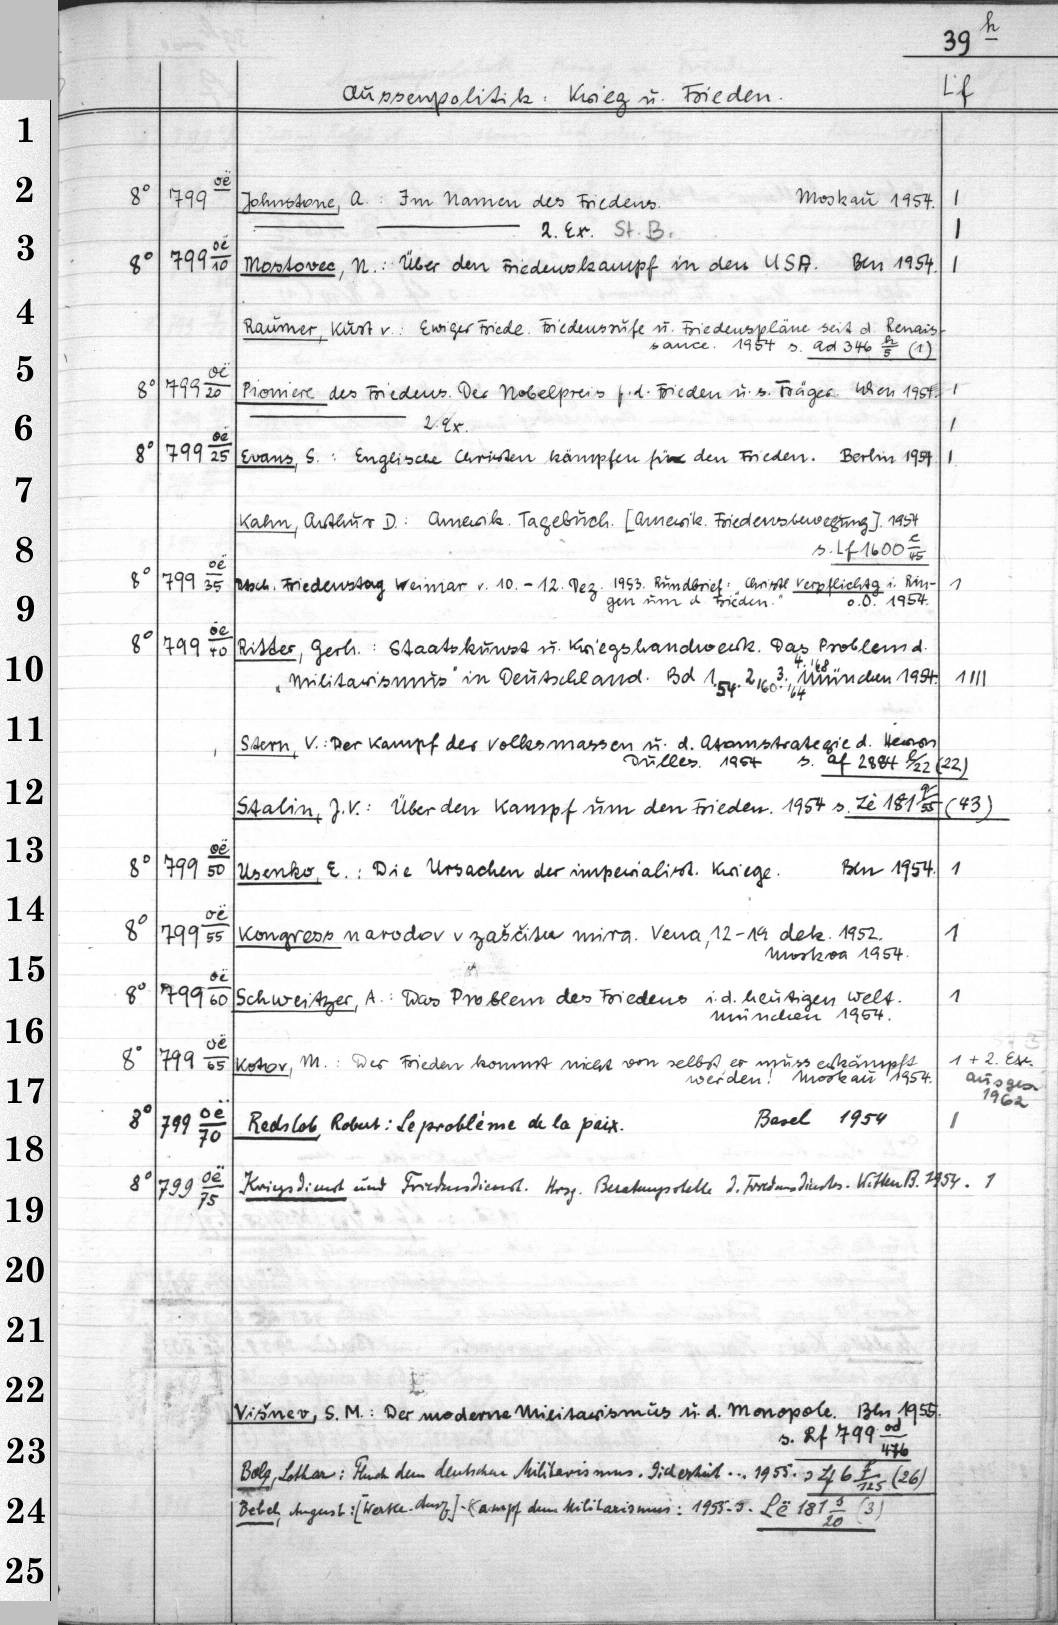 39 h
Aussenpolitik: Krieg u. Frieden. Lf
1
2 8° 799 oë Johnstone, A.: Im Namen des Friedens. Moskau 1954. 1
2. Ex. St. B. 1
3 8° 799 oë/10 Mostovec, N.: Über den Friedenskampf in den USA. Bln 1954. 1
4 Raumer, Kurt v.: Ewiger Friede. Friedensrufe u. Friedenspläne seit d. Renais-
sance. 1954 s. ad 346 h/5 (1)
5 8° 799 oë/20 Pioniere des Friedens. Der Nobelpreis f. d. Frieden u. s. Träger. Wien 1954. 1
6 2. Ex. 1
8° 799 oë/25 Evans, S.: Englische Christen kämpfen für den Frieden. Berlin 1954 1
7 Kahn, Arthur D.: Amerik. Tagebuch. [Amerik. Friedensbewegung]. 1954
8 s. Lf 1600 c/45
8° 799 oë/35 Dtsch. Friedenstag Weimar v. 10. - 12. Dez. 1953. Rundbrief: "Christl Verpflichtg i. Rin-
9 gen um d Frieden." o.O. 1954. 1
8° 799 oë/40 Ritter, Gerh.: Staatskunst u. Kriegshandwerk. Das Problem d.
10 "Militarismus" in Deutschland. Bd 1.54. 2.'60 3.'64 4.'68 München 1954. 1111
11 Stern, V.: Der Kampf der Volksmassen u. d. Atomstrategie d. Herren
Dulles. 1954 s. Af 2884 b/22 (22)
12 Stalin, J.V.: Über den Kampf um den Frieden. 1954 s. Zë 181 g/55 (43)
13 8° 799 oë/50 Usenko, E.: Die Ursachen der imperialist. Kriege. Bln 1954. 1
14 8° 799 oë/55 Kongress narodov v zaščitu mira. Vena, 12-19 dek. 1952.
Moskva 1954. 1
15 8° 799 oë/60 Schweitzer, A.: Das Problem des Friedens i. d. heutigen Welt.
München 1954. 1
16 8° 799 oë/65 Kotov, M.: Der Frieden kommt nicht von selbst, er muss erkämpft
werden! Moskau 1954. 1 + 2. Ex.
17 ausges
1962
8° 799 oë/70 Redslob, Robert: Le problème de la paix. Basel 1954 1
18
8° 799 oë/75 Kriegsdienst und Friedensdienst. Hrsg. Beratungsstelle d. Friedensdienstes. Witten R. 1954. 1
19
20
21
22 Višnev, S. M.: Der moderne Militarismus u. d. Monopole. Bln 1955.
s. Lf 799 od/476
23 Bolz, Lothar: Fluch dem deutschen Militarismus. Sicherheit ... 1955. s Zf 6 f/125 (26)
24 Bebel, August: [Werke. Ausz]. Kampf dem Militarismus: 1955. s. Lë 181 s/20 (3)
25